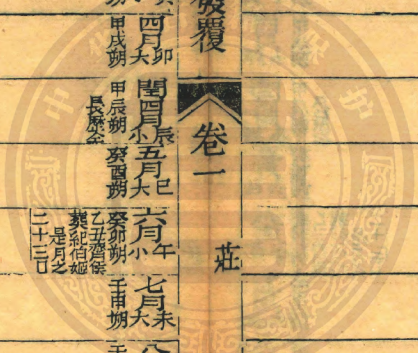 發覆
卷一
莊
四月大卯
甲戌朔
閏四月小辰
甲辰朔
長歷仝
五月大巳
癸酉朔
六月小午
癸卯朔
乙丑齊侯
葬紀伯姬
是月之
二十三日
七月大未
壬申朔